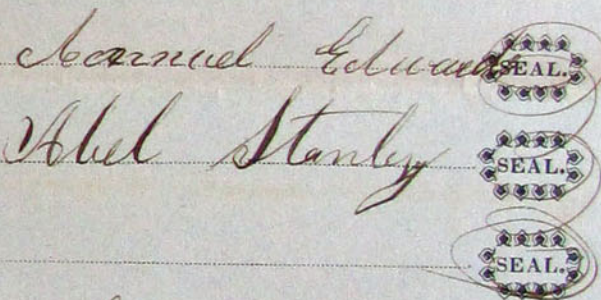 Samuel Edwards SEAL.
Abel Stanley SEAL.
SEAL.